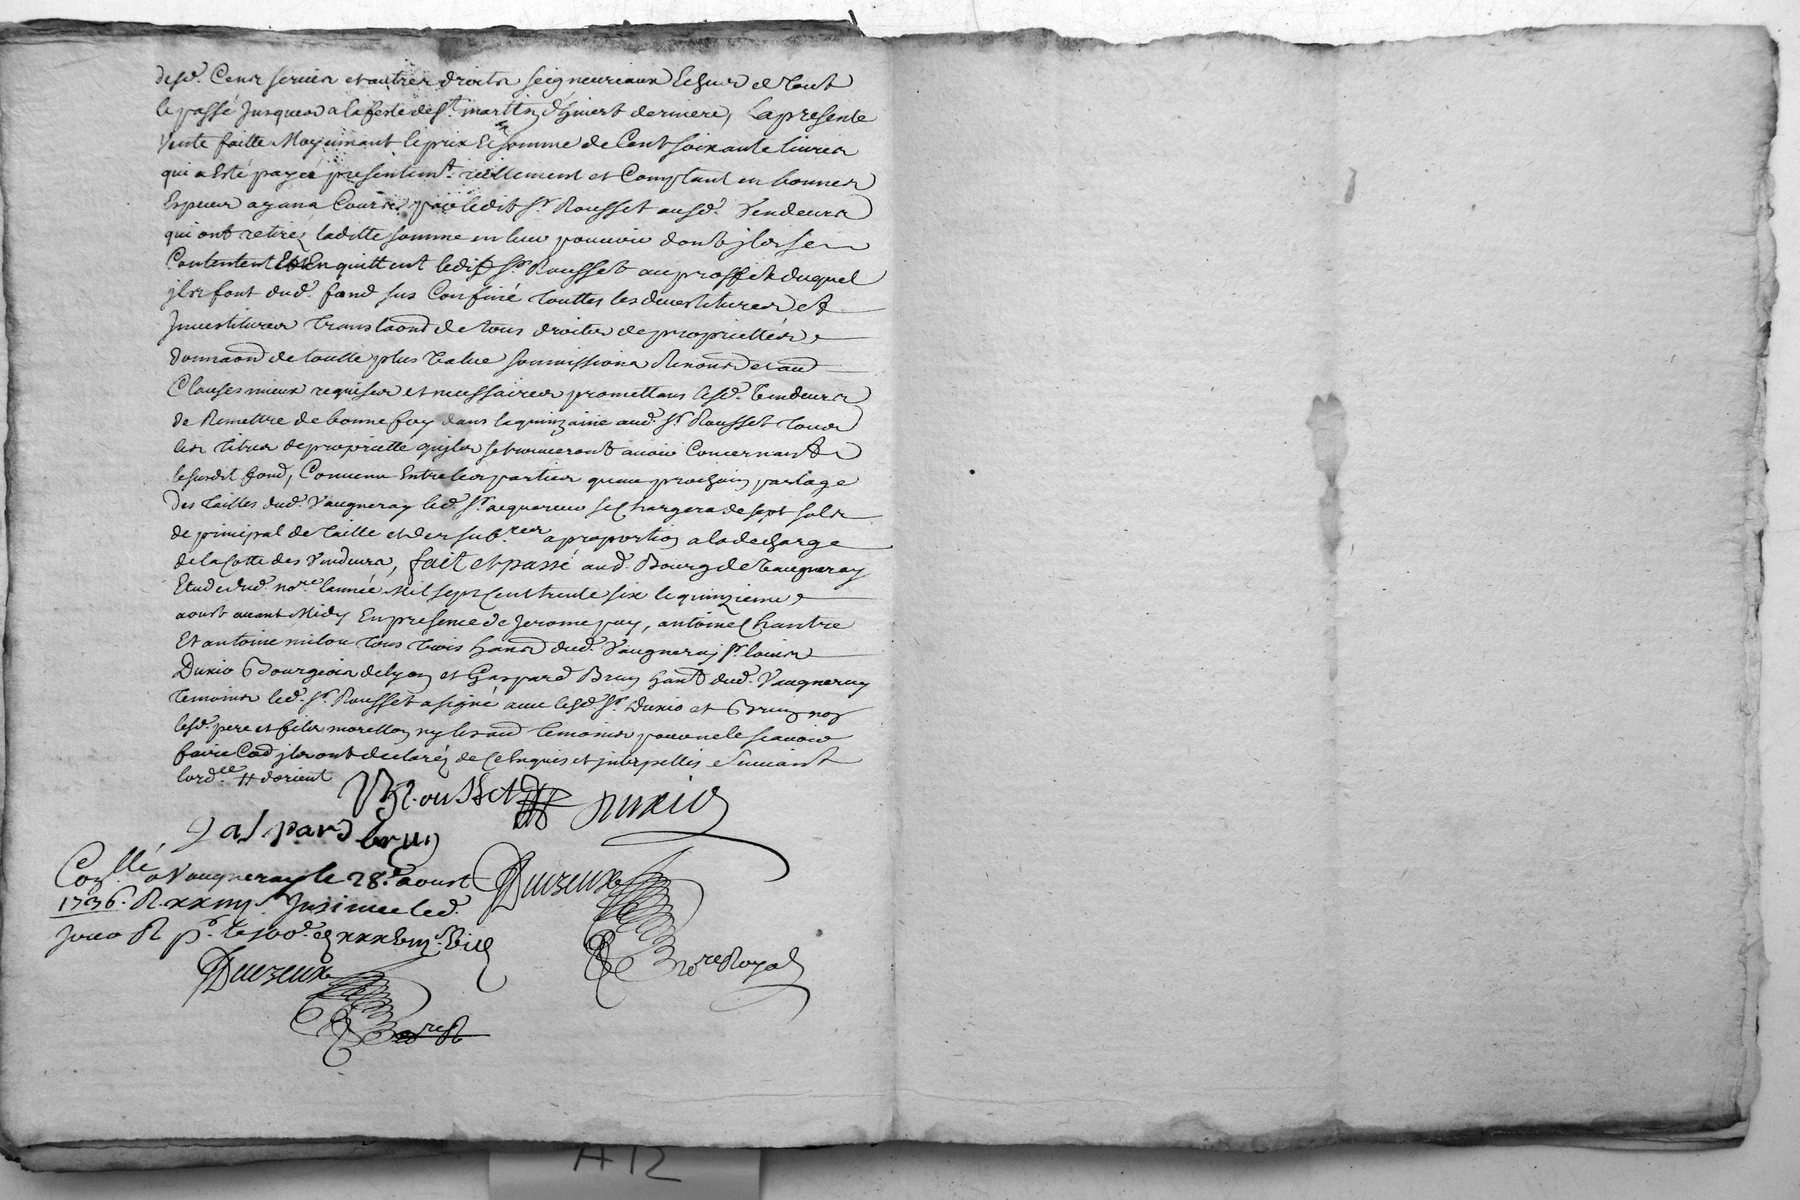 desd. Cens servies et autres droits seigneuriaux Echus de tout
le passé Jusques a la feste de St. martin d'hivert derniere, La presente
Vente faitte Moyennant le prix Et somme de Cent soixante livres
qui a esté payéé presentemt. reellement et Comptant en bonnes
Especes ayans Cours par ledit Sr. Rousset ausd. Vendeurs
qui ont retiré laditte somme en leur pouvoir dont ils se
Contentent Et En quittent ledit Sr. Rousset au proffit duquel
ils font dud. fond sus Confiné touttes les devestitures et
Investitures translaond de tous droits de proprietté
donnaond de toutte plus value soumissions Renond et aud
Clauses mieux requises et necessaires promettans lesd. Vendeurs
de Remettre de bonne foy dans la quinzaine aud. Sr. Rousset tous
les titres de proprietté qu'ils se trouveront avoir Concernant
le susdit fond, Convenu Entre les parties qu'au prochain partage
Des tailles dud. Vaugneray led. Sr. acquereur se Chargera de sept sols
de principal de taille et des sub.res a proportion a la decharge
de la Cotte des Vendeurs, fait et passé aud. Bourg de Vaugneray
Etude dud. nore. l'année Mil sept Cent trente six le quinzieme
aoust avant Midy En presence de Jerome puy, antoine Chantre
Et antoine milou tous trois hands dud. Vaugneray Sr. louis
Duxio Bourgeois de lyon et Gaspard Brun hant dud. Vaugneray
temoins led. Sr. Rousset a signé avec lesd Sr. Duxio et Brun non
lesd. pere et fils morellon ny les aud temoins pour ne le scavoir
faire Cod ils ont declaréz de Ce Enquis et interpellés Suivant
lord.ce H dorient
Rousset Duxio
gaspard brun
Con.llé a Vaugneray le 28e. aoust
1736. R. xxiiij s. Insinué led.
jour R
Duvzeux
nore Royal
Duvzeux
nore R
A12